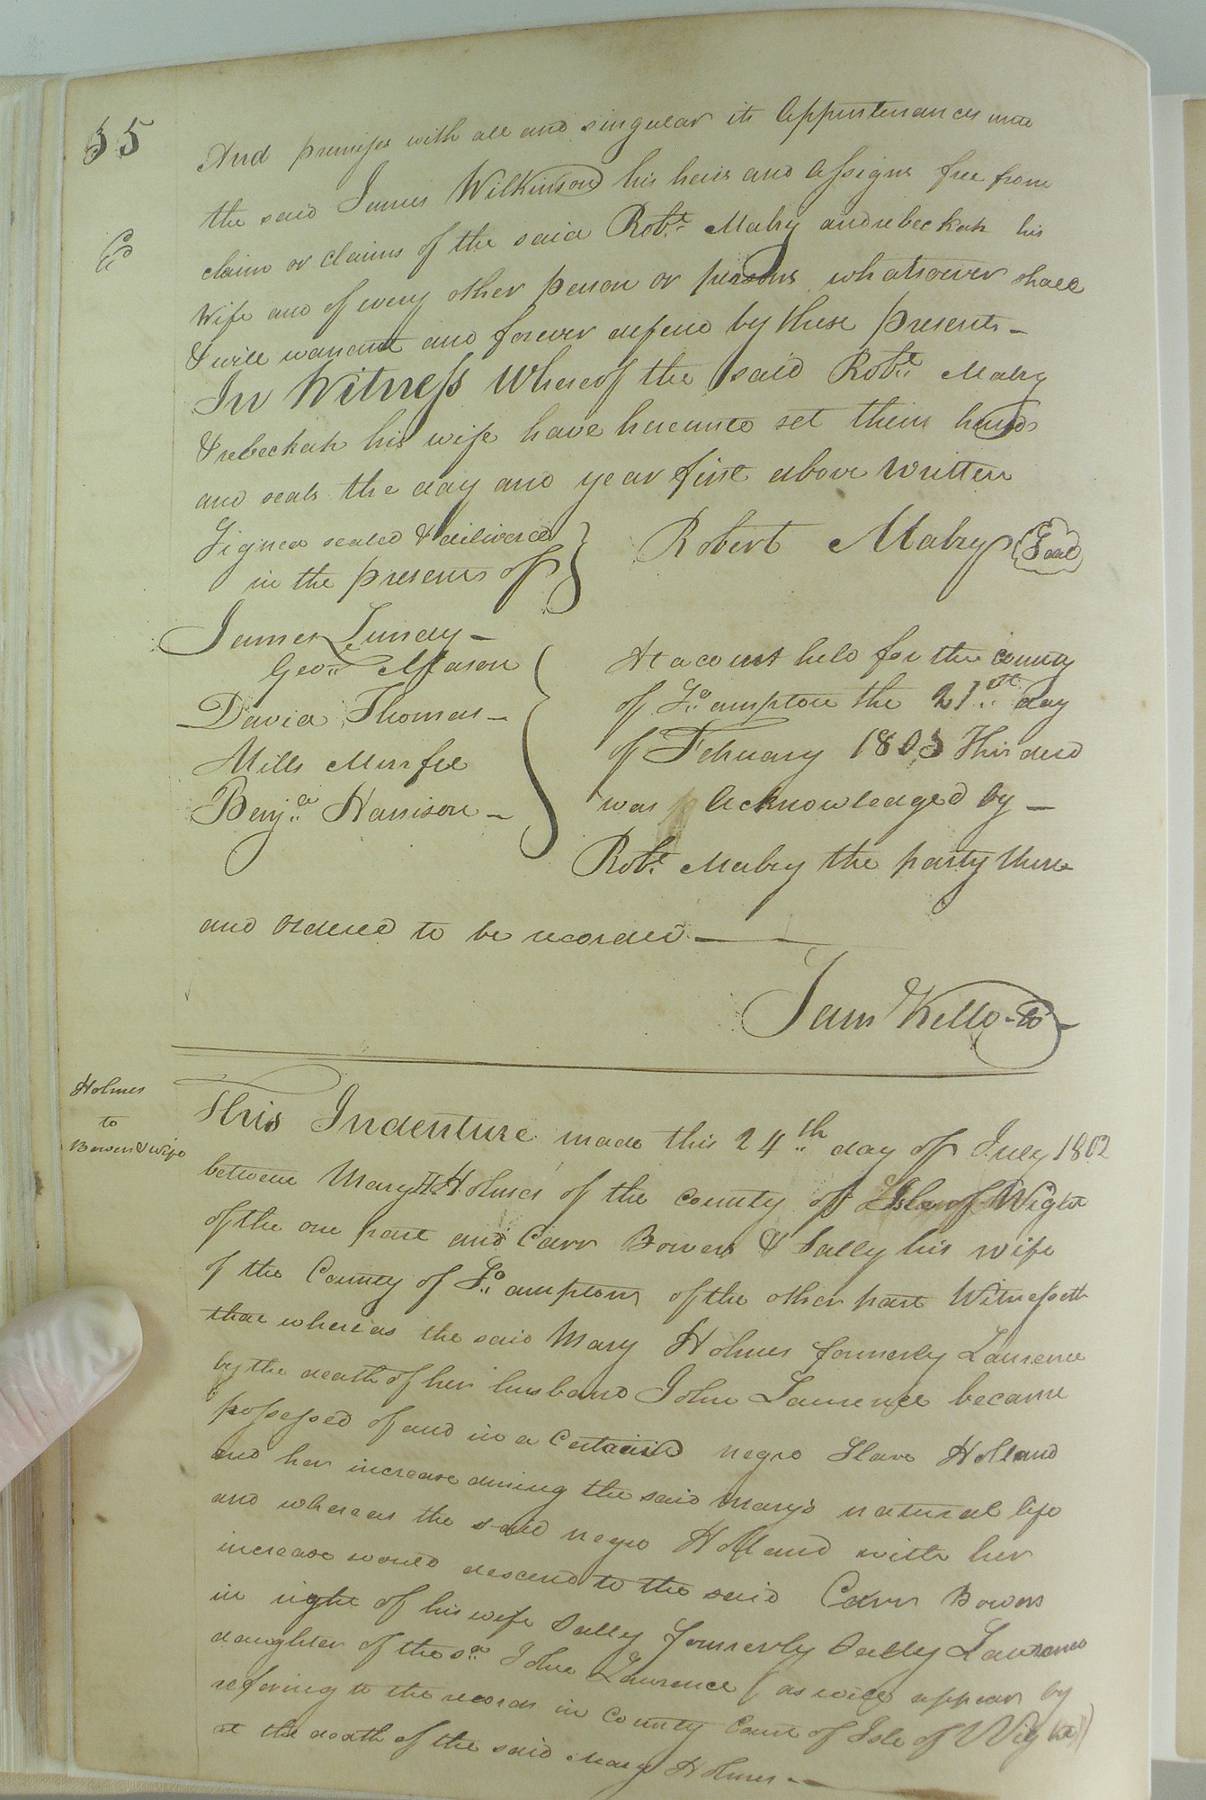 35
And premises with all and singular its Appurtenances unto
the said James Wilkinson his heirs and Assigns free from
claim or claims of the said Robt. Mabry and rebeckah his
Wife and of every other person or persons whatsoever shall
& will warrant and forever defend by these presents —
In Witness Whereof the said Robt. Mabry
& rebeckah his wife have hereunto set their hands
and seals the day and year first above Written
Signed sealed & delivered
in the presents of
Robert Mabry Seal
James Lundy —
Geo. Mason
David Thomas —
Mills Murfee
Benja. Harrison —
At a court held for the county
of So.ampton the 21st day
of February 1803 This deed
was Acknowledged by —
Robt. Mabry the party there
and ordered to be recorded —
Sam Kello
Holmes
to
Bowers & wife
This Indenture made this 24th day of July 1802
between Mary H Holmes of the county of Isle of Wight
of the one part and Carr Bowers & Sally his wife
of the County of So.ampton of the other part Witnesseth
that whereas the said Mary Holmes formerly Laurence
by the death of her husband John Laurence became
possessed of and in a Certain negro Slave Holland
and her increase during the said Mary's natural life
and whereas the said negro Holland with her
increase would descend to the said Carr Bowers
in right of his wife Sally formerly Sally Laurence
daughter of the sd. John Laurence (as will appear by
refering to the records in County Court of Isle of Wight)
at the death of the said Mary Holmes —